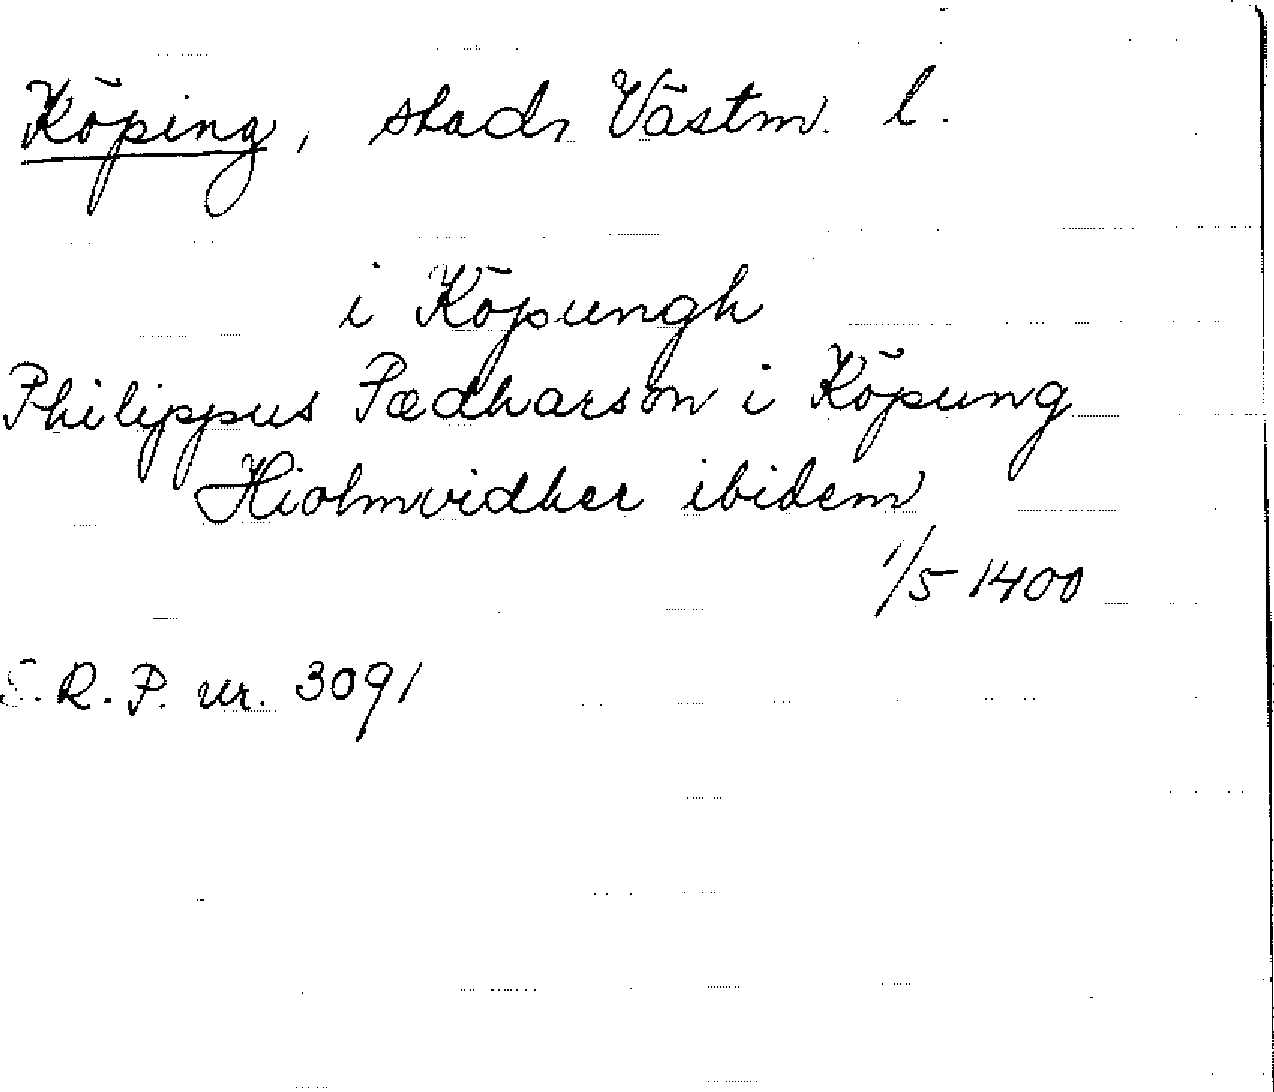 Köping, stad, Västm. l.
i Köpungh
Philippus Pædharson i Köpung
Hiolmvidher ibidem
1/5 1400
S.R.P. nr. 3091